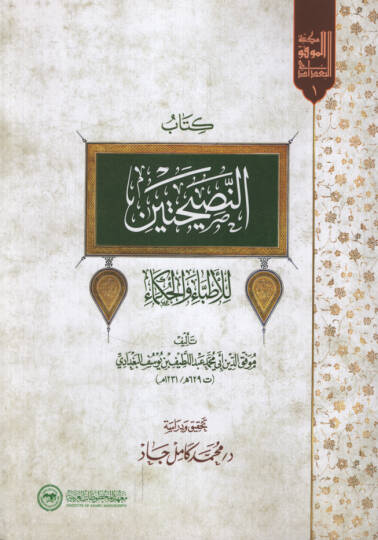 مكتبة
الموفق
البغدادي
١
كتاب
النصيحتين
للأطباء والحكماء
تأليف
موفق الدين أبي محمد عبد اللطيف بن يوسف البغدادي
(ت ٦٢٩هـ/ ١٢٣١م)
تحقيق ودراسة
د/ محمد كامل جاد
معهد المخطوطات العربية
INSTITUTE OF ARABIC MANUSCRIPTS